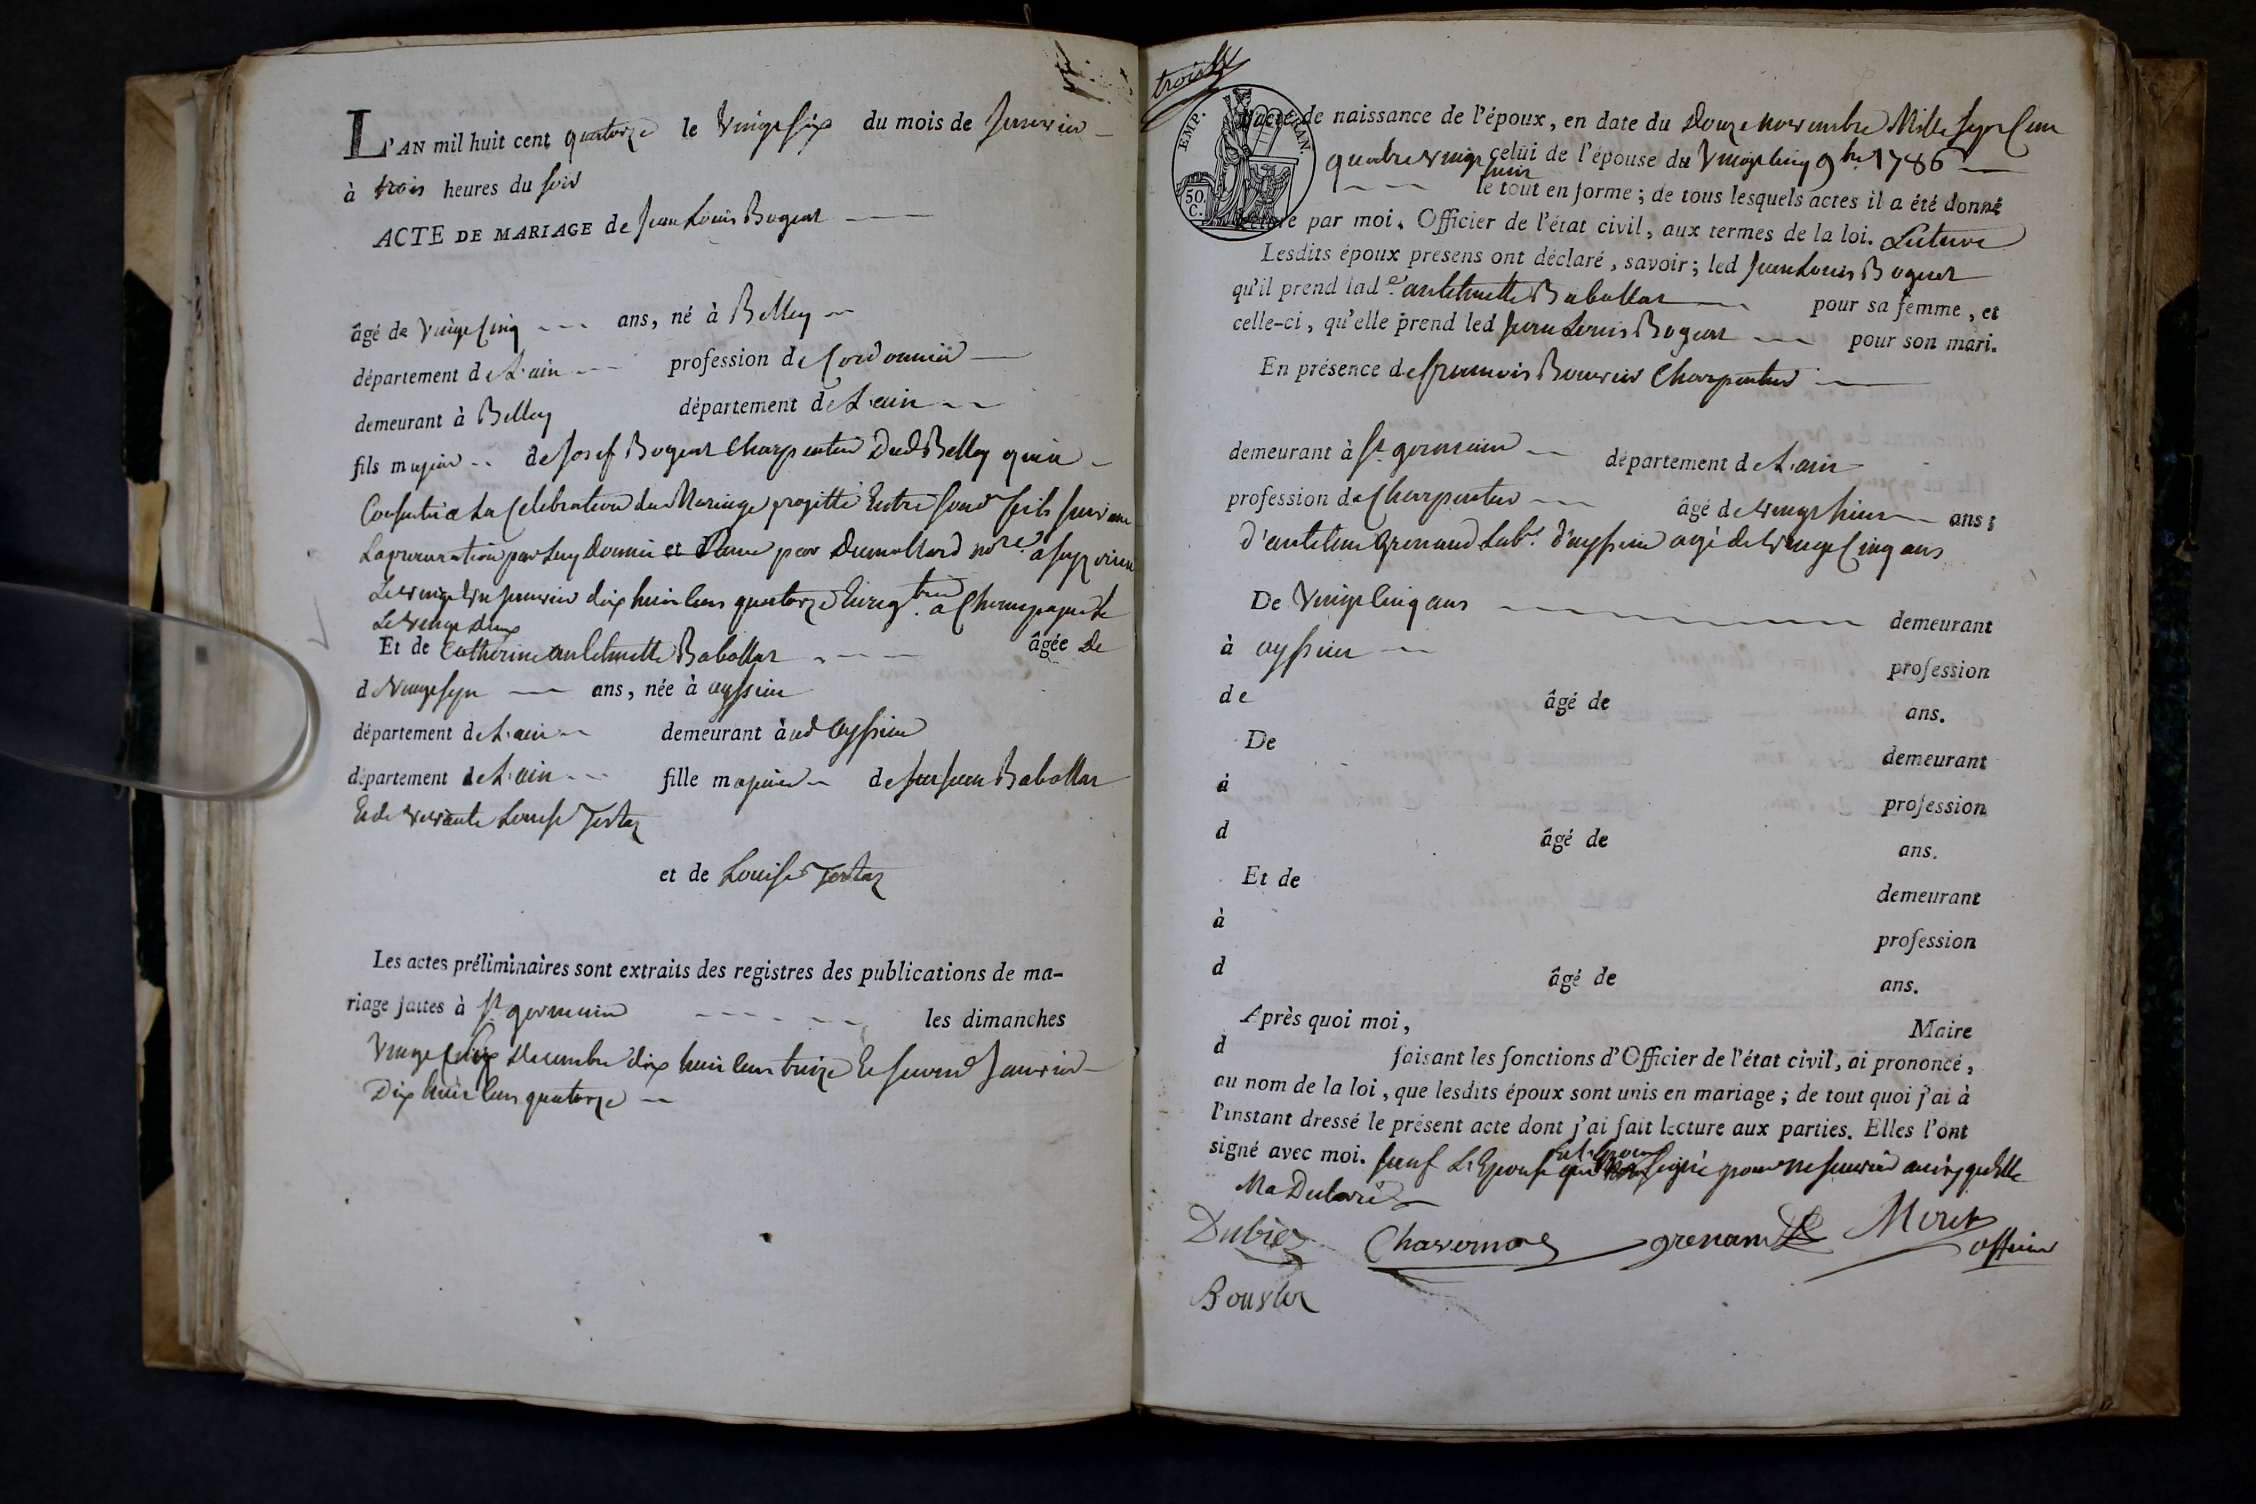 L'AN mil huit cent quatorze le vingt six du mois de Janvier
à trois heures du soir
ACTE DE MARIAGE de Jean Louis Bogeat
âgé de vingt cinq ans, né à Belley
département de L'ain profession de Cordonnier
demeurant à Belley département de L'ain
fils majeur de Josef Bogeat Charpentier Dud Belley qui a
Consenti a La Celebration du Mariage projetté Entre sond fils suivant
La procuration par Luy donnée et Reçue par Dumollard nore a
Le vingt un janvier dix huit Cent quatorze a Champagne le
Le vingt deux
Et de Catherine antelmette Babollat âgée De
de vingt sept ans, née à ayssieu
département de L'ain demeurant à ud ayssieu
département de L'ain fille majeure de feu jean Babollat
Et de vivante Louise
et de Louise
Les actes préliminaires sont extraits des registres des publications de ma-
riage faites à St germain les dimanches
vingt six Decembre dix huit Cent treize Et second Janvier
Dix huit Cent quatorze
trois
EMP. FRAN.
50. C.
L'acte de naissance de l'époux, en date du Douze novembre Mille sept Cent
quatre vingt huit celui de l'épouse du vingt cinq 9bre 1786
le tout en forme; de tous lesquels actes il a été donné
lecture par moi, Officier de l'état civil, aux termes de la loi. Lecture
Lesdits époux présens ont déclaré, savoir; led Jean Louis Bogeat
qu'il prend lade antelmette Babollat pour sa femme, et
celle-ci, qu'elle prend led Jean Louis Bogeat pour son mari.
En présence de françois Bouvier Charpentier
demeurant à St germain département de L'ain
profession de Charpentier âgé de vingt huit ans;
d'antelme Grenaud Labr. d'ayssieu agé de vingt Cinq ans
De vingt Cinq ans demeurant
à ayssieu profession
de âgé de ans.
De demeurant
à profession
d âgé de ans.
Et de demeurant
à profession
d âgé de ans.
Après quoi moi, Maire
d faisant les fonctions d'Officier de l'état civil, ai prononcé,
au nom de la loi, que lesdits époux sont unis en mariage; de tout quoi j'ai à
l'instant dressé le présent acte dont j'ai fait lecture aux parties. Elles l'ont
signé avec moi. sauf L'Epouse signé pour ne sçavoir ainsy qu'Elle
Ma Declaré
Dubiez Chavornod grenaud Moret
officier
Bouvier